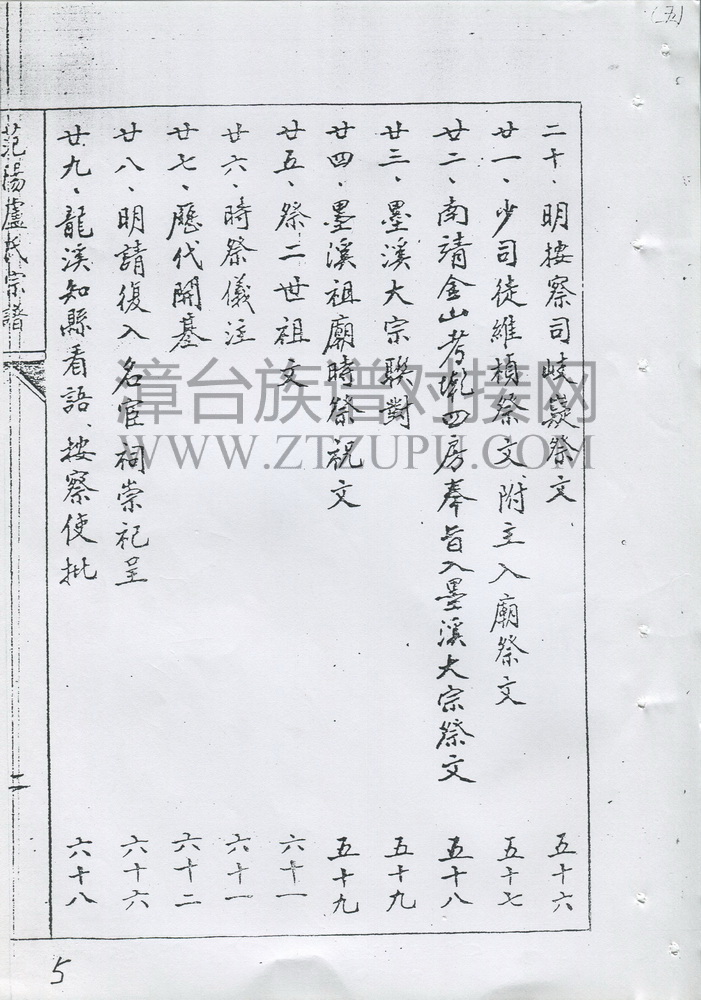 (五)
二十、明按察司岐嶷祭文 五十六
廿一、少司徒維楨祭文、附主入廟祭文 五十七
廿二、南靖金山考塘四房奉旨入墨溪大宗祭文 五十八
廿三、墨溪大宗聯對 五十九
廿四、墨溪祖廟時祭祝文 五十九
廿五、祭二世祖文 六十一
廿六、時祭儀注 六十一
廿七、歷代開基 六十二
廿八、明請復入名宦祠崇祀呈 六十六
廿九、龍溪知縣看語、按察使批 六十八
范陽盧氏宗譜
二
5
漳台族谱对接网
WWW.ZTZUPU.COM